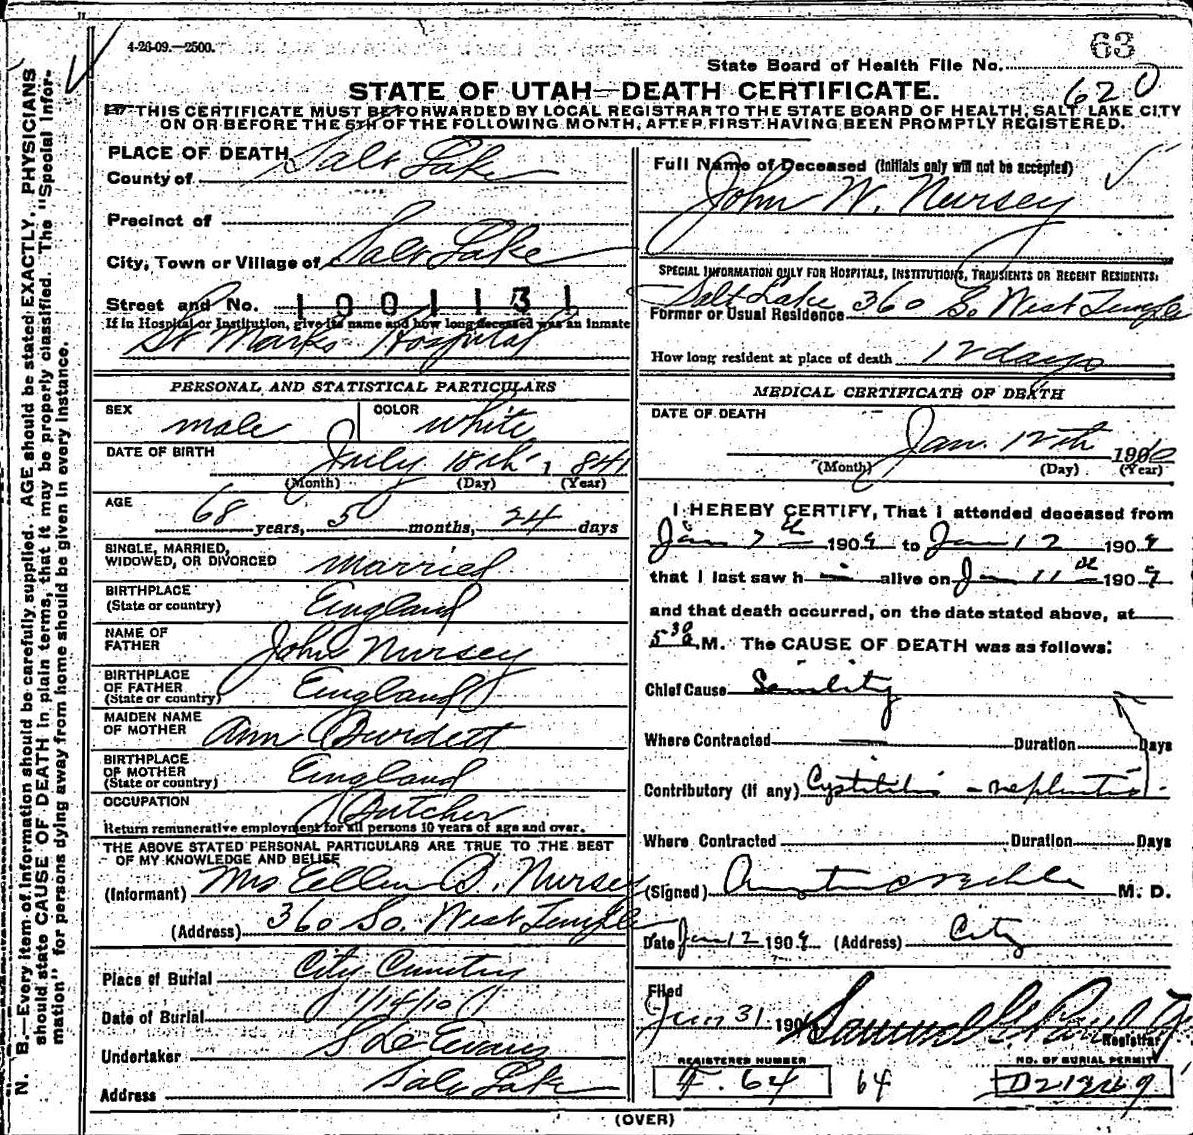 4-26-09.—2500.
63
State Board of Health File No.
620
STATE OF UTAH—DEATH CERTIFICATE.
THIS CERTIFICATE MUST BE FORWARDED BY LOCAL REGISTRAR TO THE STATE BOARD OF HEALTH, SALT LAKE CITY
ON OR BEFORE THE 5TH OF THE FOLLOWING MONTH, AFTER FIRST HAVING BEEN PROMPTLY REGISTERED.
N. B.—Every item of information should be carefully supplied. AGE should be stated EXACTLY. PHYSICIANS
should state CAUSE OF DEATH in plain terms, that it may be properly classified. The "Special Infor-
mation" for persons dying away from home should be given in every instance.
PLACE OF DEATH
County of Salt Lake
Precinct of
City, Town or Village of Salt Lake
Street and No. 1001131
If in Hospital or Institution, give its name and how long deceased was an inmate
St Marks Hospital
PERSONAL AND STATISTICAL PARTICULARS
SEX male COLOR white
DATE OF BIRTH July 18th, 1841
(Month) (Day) (Year)
AGE 68 years, 5 months, 24 days
SINGLE, MARRIED,
WIDOWED, OR DIVORCED married
BIRTHPLACE
(State or country) England
NAME OF
FATHER John Nursey
BIRTHPLACE
OF FATHER
(State or country) England
MAIDEN NAME
OF MOTHER Ann Burdett
BIRTHPLACE
OF MOTHER
(State or country) England
OCCUPATION Butcher
Return remunerative employment for all persons 10 years of age and over.
THE ABOVE STATED PERSONAL PARTICULARS ARE TRUE TO THE BEST
OF MY KNOWLEDGE AND BELIEF
(Informant) Mrs Ellen B. Nursey
(Address) 360 So. West Temple
Place of Burial City Cemetry
Date of Burial 1/14/10
Undertaker S D Evans
Address Salt Lake
Full Name of Deceased (Initials only will not be accepted)
John W. Nursey
SPECIAL INFORMATION ONLY FOR HOSPITALS, INSTITUTIONS, TRANSIENTS OR RECENT RESIDENTS:
Salt Lake
Former or Usual Residence 360 So West Temple
How long resident at place of death 12 days
MEDICAL CERTIFICATE OF DEATH
DATE OF DEATH
Jan. 12th 1910
(Month) (Day) (Year)
I HEREBY CERTIFY, That I attended deceased from
Jan 7th 1909 to Jan 12 1909
that I last saw him alive on Jan 11th 1909
and that death occurred, on the date stated above, at
5 30 a M. The CAUSE OF DEATH was as follows:
Chief Cause Senility
Where Contracted Duration Days
Contributory (if any) Cystitis - nephritis
Where Contracted Duration Days
(Signed) M. D.
Date Jan 12 1909 (Address) City
Filed
Jan 31 190 Samuel G. Paul
Registrar
REGISTERED NUMBER NO. OF BURIAL PERMIT
F. 64 64 D21369
(OVER)